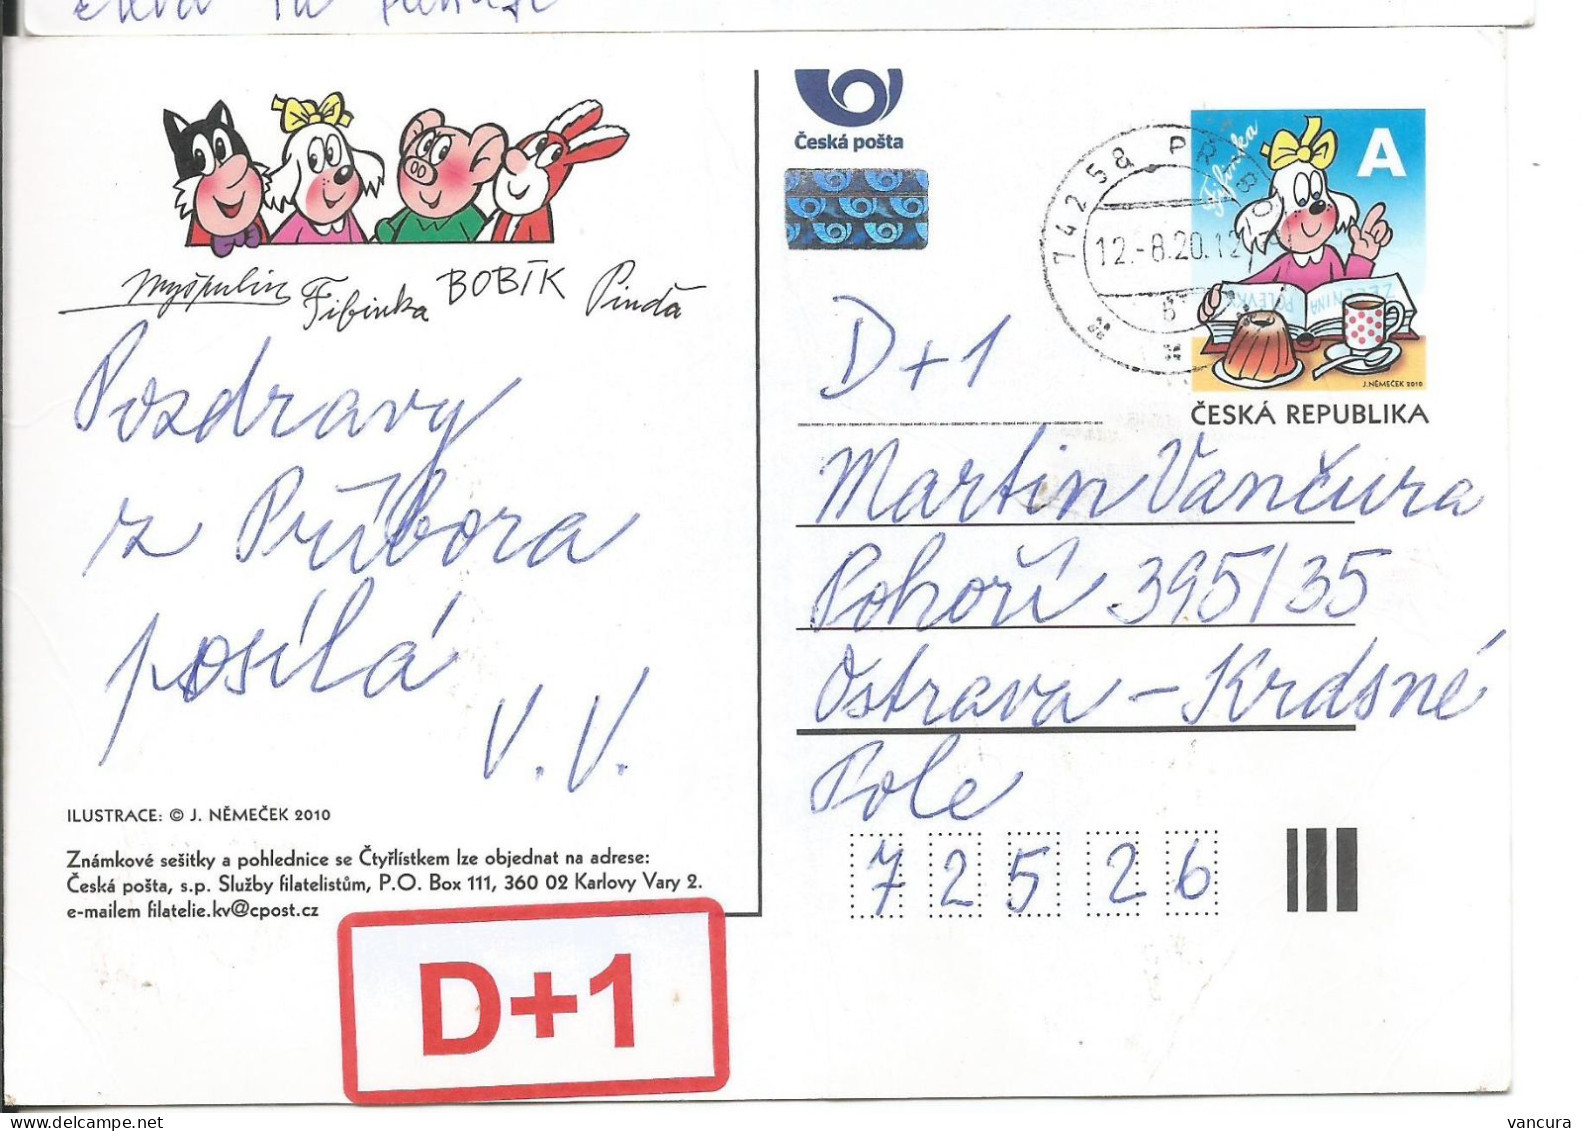 Česká pošta
Myšpulín Fifinka BOBÍK Pinďa
Pozdravy
z Příbora
posílá
V. V.
ILUSTRACE: © J. NĚMEČEK 2010
Známkové sešitky a pohlednice se Čtyřlístkem lze objednat na adrese:
Česká pošta, s.p. Služby filatelistům, P.O. Box 111, 360 02 Karlovy Vary 2.
e-mailem filatelie.kv@cpost.cz
D+1
Fifinka
A
ZELENINA
POLÉVKY
J.NĚMEČEK 2010
ČESKÁ REPUBLIKA
74258 PŘÍBOR
12.-8.20.12
D+1
Martin Vančura
Pohoří 395/35
Ostrava - Krásné
Pole
72526
vancura